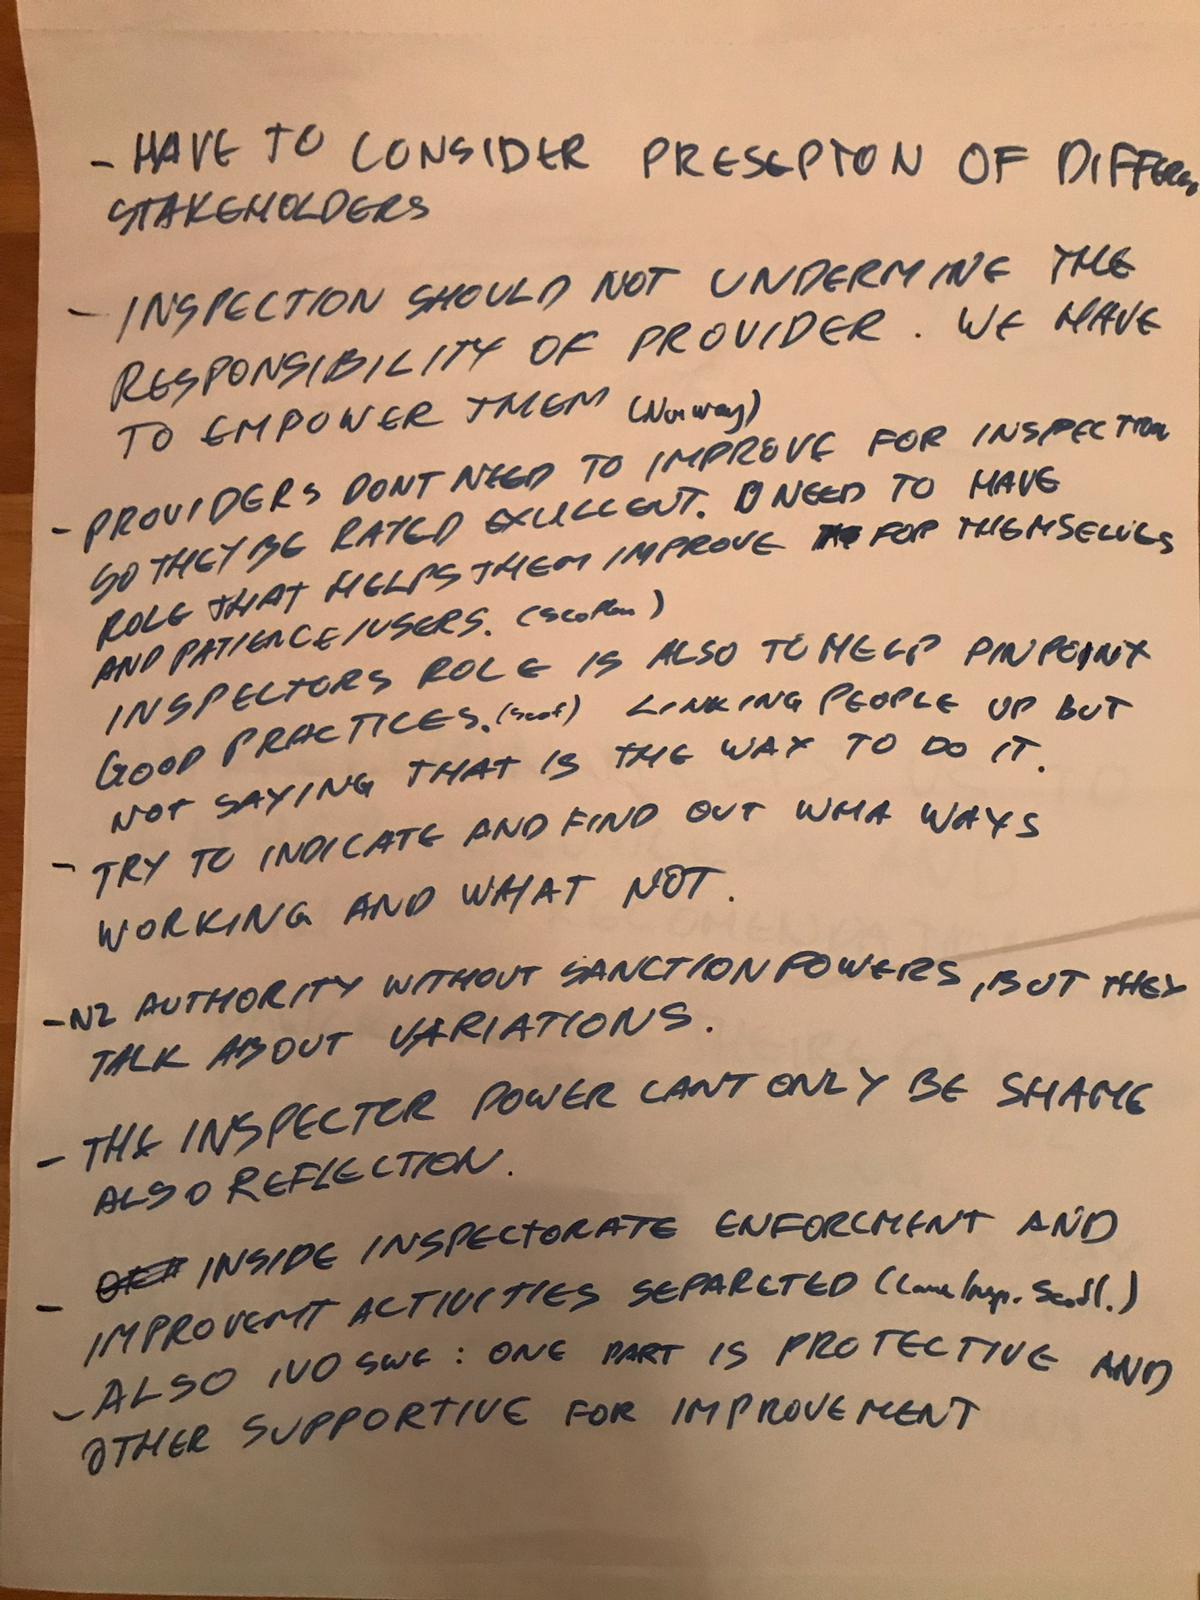 - HAVE TO CONSIDER PRESEPTON OF DIFFEREN
STAKEHOLDERS
- INSPECTION SHOULD NOT UNDERMINE THE
RESPONSIBILITY OF PROVIDER. WE HAVE
TO EMPOWER THEM (Norway)
- PROVIDERS DONT NEED TO IMPROVE FOR INSPECTION
SO THEY BE RATED EXELLENT. NEED TO HAVE
ROLE THAT HELPS THEM IMPROVE FOR THEMSELVES
AND PATIENCE/USERS.
INSPECTORS ROLE IS ALSO TO HELP PINPOINT
GOOD PRACTICES. (Scot) LINKING PEOPLE UP BUT
NOT SAYING THAT IS THE WAY TO DO IT.
- TRY TO INDICATE AND FIND OUT WHA WAYS
WORKING AND WHAT NOT.
- NZ AUTHORITY WITHOUT SANCTION POWERS, BUT THEY
TALK ABOUT VARIATIONS.
- THE INSPECTOR POWER CANT ONLY BE SHAME
ALSO REFLECTION.
- INSIDE INSPECTORATE ENFORCMENT AND
IMPROVEMT ACTIVITIES SEPARETED (Care Insp. Scotl.)
- ALSO IVO SWE: ONE PART IS PROTECTIVE AND
OTHER SUPPORTIVE FOR IMPROVEMENT